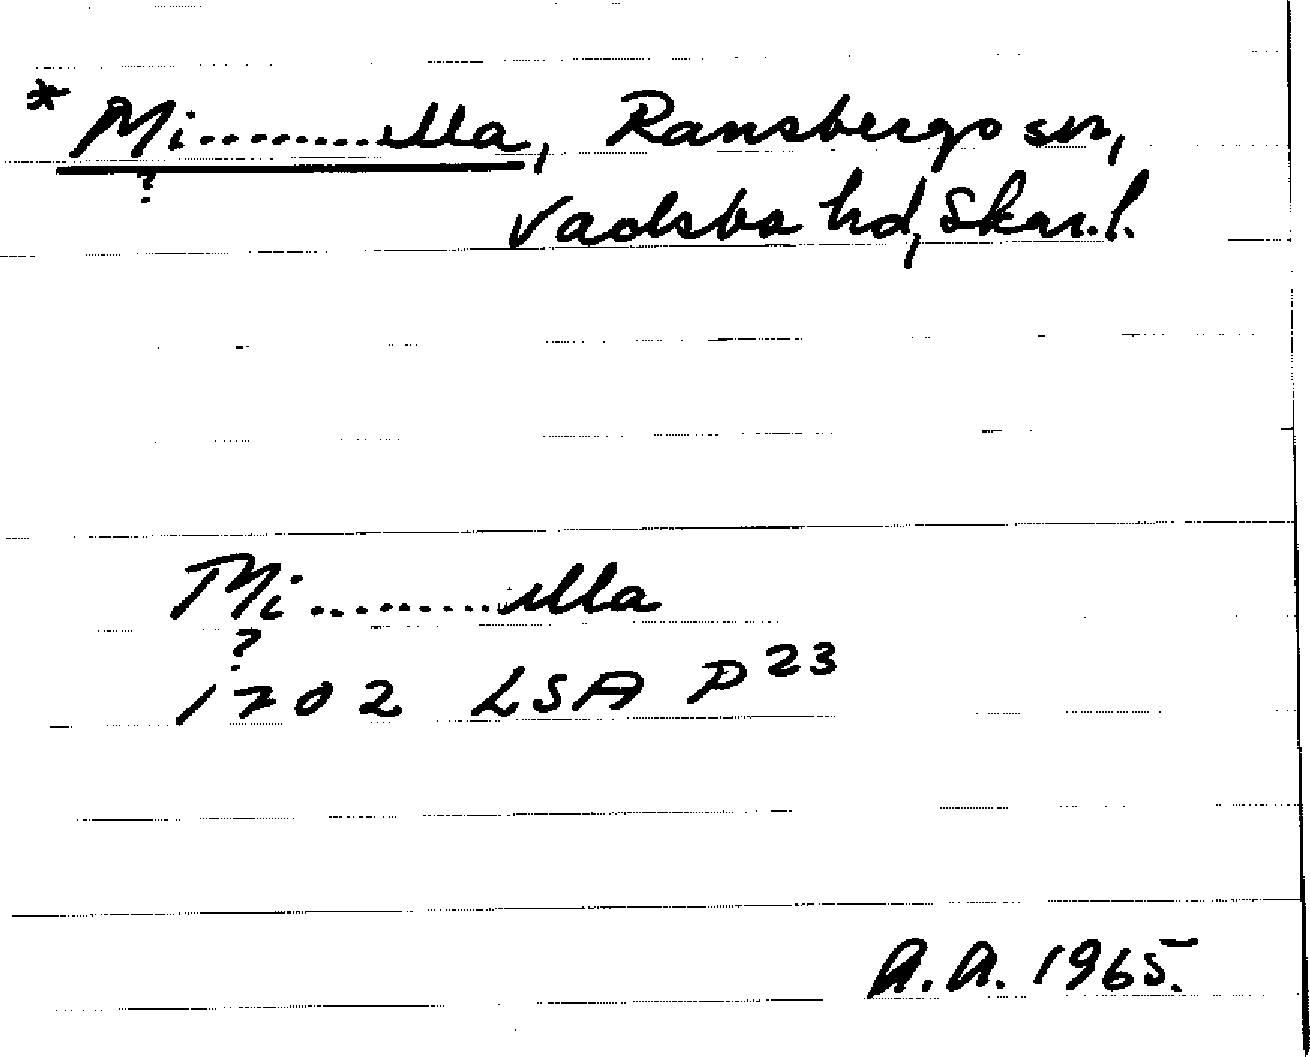 * Mi..........ella, Ransbergs sn,
?
Vadsbo hd, Skar.l.
Mi..........ella
?
1702 LSA P23
A.A. 1965.